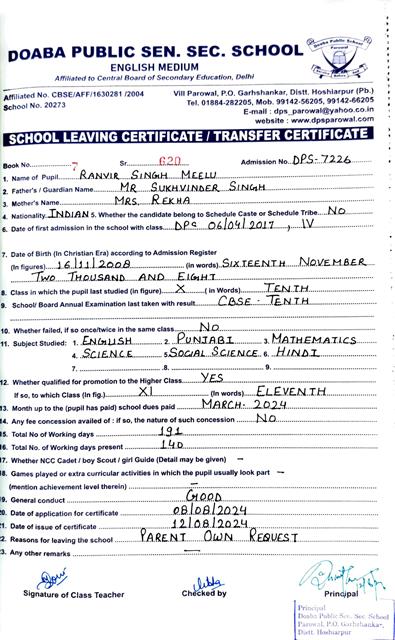 DOABA PUBLIC SEN. SEC. SCHOOL
ENGLISH MEDIUM
Affiliated to Central Board of Secondary Education, Delhi
Doaba Public School
Parowal
Affiliated No. CBSE/AFF/1630281 /2004
School No. 20273
Vill Parowal, P.O. Garhshankar, Distt. Hoshiarpur (Pb.)
Tel. 01884-282205, Mob. 99142-56205, 99142-66205
E-mail : dps_parowal@yahoo.co.in
website : www.dpsparowal.com
SCHOOL LEAVING CERTIFICATE / TRANSFER CERTIFICATE
Book No. 7 Sr. 620 Admission No. DPS-7226
1. Name of Pupil RANVIR SINGH MEELU
2. Father's / Guardian Name MR SUKHVINDER SINGH
3. Mother's Name MRS. REKHA
4. Nationality INDIAN 5. Whether the candidate belong to Schedule Caste or Schedule Tribe NO
6. Date of first admission in the school with class DPS 06/04/2017, IV
7. Date of Birth (In Christian Era) according to Admission Register
(In figures) 16/11/2008 (in words) SIXTEENTH NOVEMBER
TWO THOUSAND AND EIGHT
8. Class in which the pupil last studied (in figure) X (In Words) TENTH
9. School/ Board Annual Examination last taken with result CBSE - TENTH
10. Whether failed, if so once/twice in the same class NO
11. Subject Studied: 1. ENGLISH 2. PUNJABI 3. MATHEMATICS
4. SCIENCE 5. SOCIAL SCIENCE 6. HINDI
7. 8. 9.
12. Whether qualified for promotion to the Higher Class YES
If so, to which Class (In fig.) XI (In Words) ELEVENTH
13. Month up to the (pupil has paid) school dues paid MARCH- 2024
14. Any fee concession availed of : if so, the nature of such concession NO
15. Total No of Working days 191
16. Total No. of Working days present 140
17. Whether NCC Cadet / boy Scout / girl Guide (Detail may be given) -
18. Games played or extra curricular activities in which the pupil usually look part -
(mention achievement level therein) -
19. General conduct GOOD
20. Date of application for certificate 08/08/2024
21. Date of issue of certificate 12/08/2024
22. Reasons for leaving the school PARENT OWN REQUEST
23. Any other remarks -
Signature of Class Teacher Checked by Principal
Principal
Doaba Public Sen. Sec. School
Parowal, P.O. Garhshankar,
Distt. Hoshiarpur